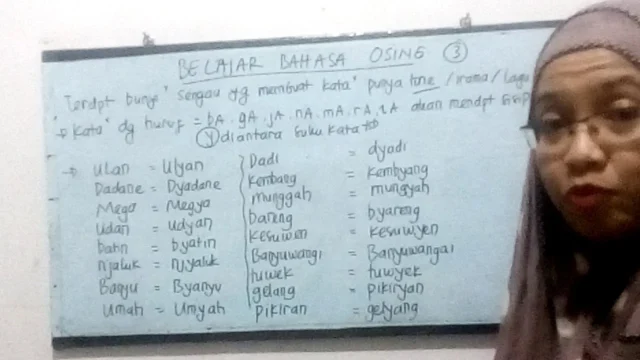 BELAJAR BAHASA OSING ③
Terdpt bunyi² sengau yg membuat kata² punya tone / irama / lagu
→ Kata² dg huruf = bA. gA. jA. nA. mA. rA. lA akan mendpt
(y) diantara suku kata tsb
→ ulan = Ulyan
Dadane = Dyadane
Mega = Megya
Udan = udyan
batin = byatin
njaluk = njyaluk
Banyu = Byanyu
Umah = Umyah
Dadi = dyadi
Kembang = Kembyang
munggah = mungyah
bareng = byareng
Kesuwen = Kesuwyen
Banyuwangi = Banyuwangai
tuwek = tuwyek
gelang = pikiryan
pikiran = gelyang